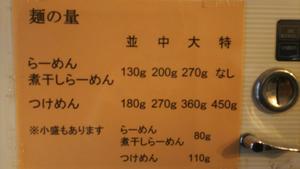 麺の量
並 中 大 特
らーめん
煮干しらーめん 130g 200g 270g なし
つけめん 180g 270g 360g 450g
※小盛もあります らーめん
煮干しらーめん 80g
つけめん 110g